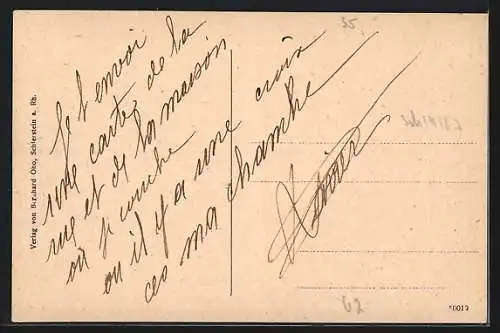 Je t envoi
une carte de la
rue et de la maison
ou je couche
ou il y a une croix
ces ma chambre
35
62
Verlag von Bernhard Oho, Schierstein a. Rh.